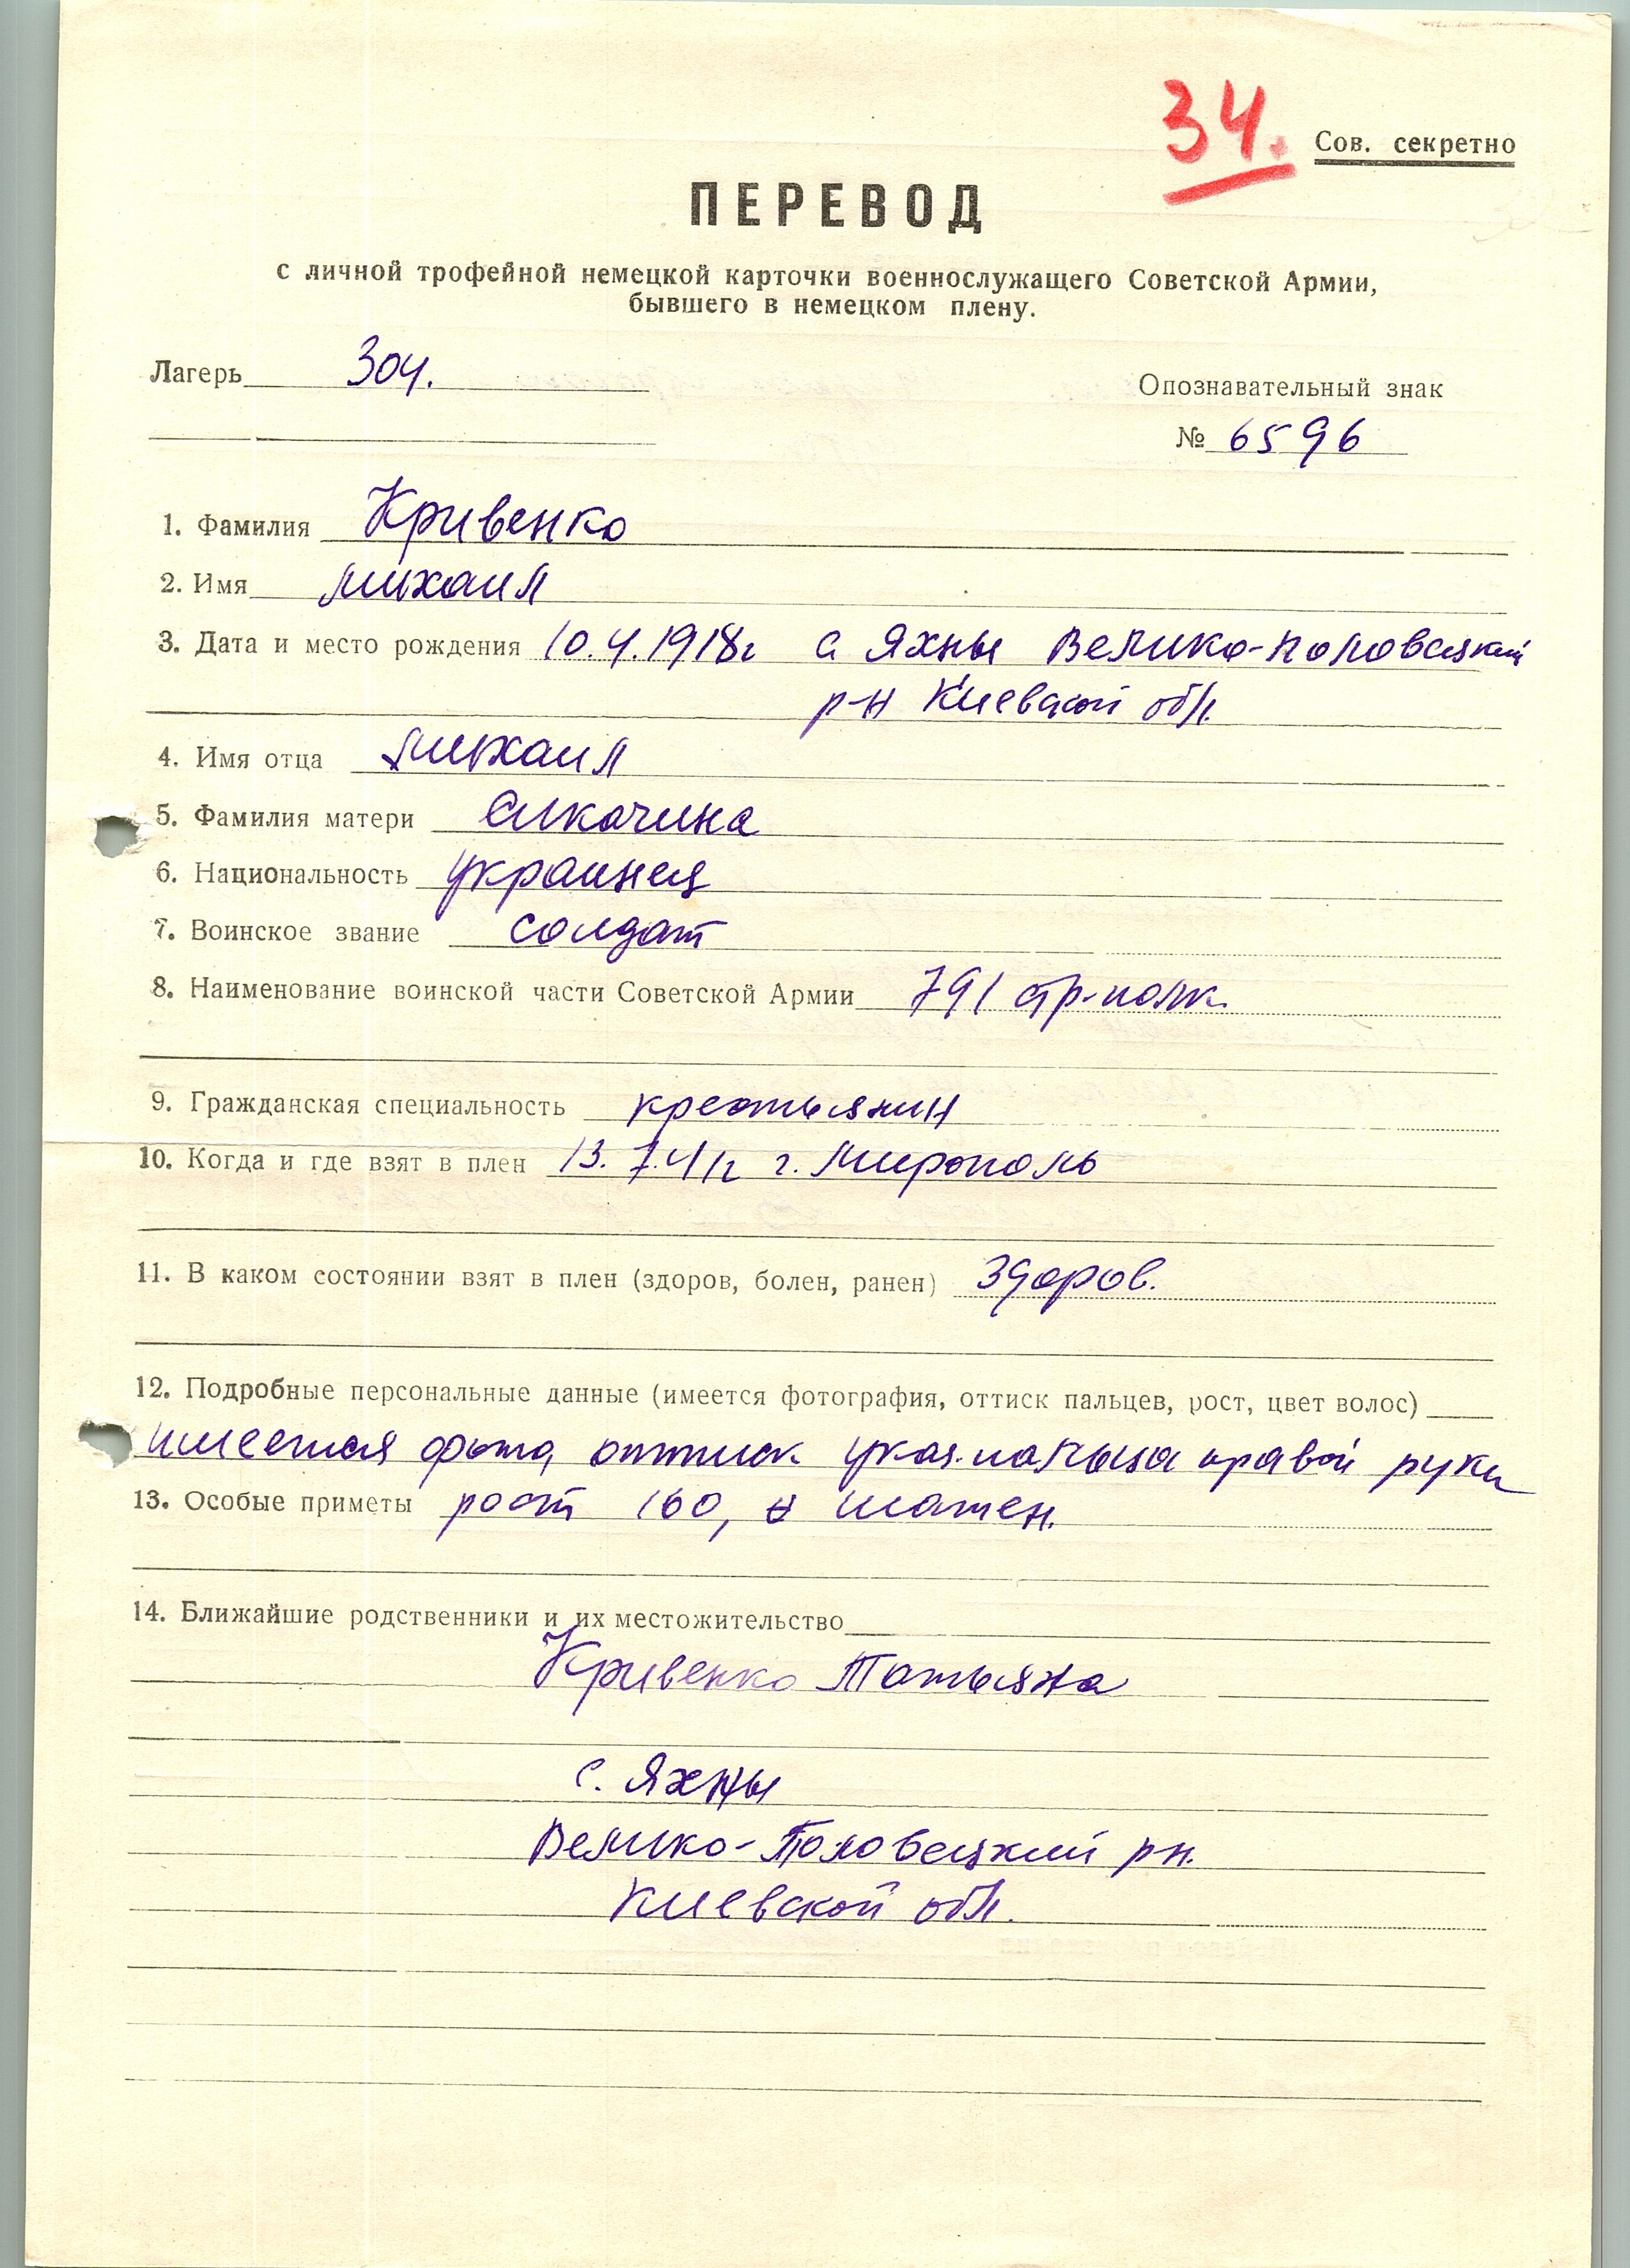 34.
Сов. секретно
ПЕРЕВОД
с личной трофейной немецкой карточки военнослужащего Советской Армии,
бывшего в немецком плену.
Лагерь 304.
Опознавательный знак
№ 6596
1. Фамилия Кривенко
2. Имя Михаил
3. Дата и место рождения 10.4.1918г с Яхны Велико-Половецкий
р-н Киевской обл.
4. Имя отца Михаил
5. Фамилия матери
6. Национальность украинец
7. Воинское звание солдат
8. Наименование воинской части Советской Армии 791 стр-полк.
9. Гражданская специальность крестьянин
10. Когда и где взят в плен 13.7.41г г. Мирополь
11. В каком состоянии взят в плен (здоров, болен, ранен) здоров.
12. Подробные персональные данные (имеется фотография, оттиск пальцев, рост, цвет волос)
имеется фото, оттиск указ. пальца правой руки
13. Особые приметы рост 160, шатен.
14. Ближайшие родственники и их местожительство
Кривенко Татьяна
с. Яхны
Велико-Половецкий рн.
Киевской обл.